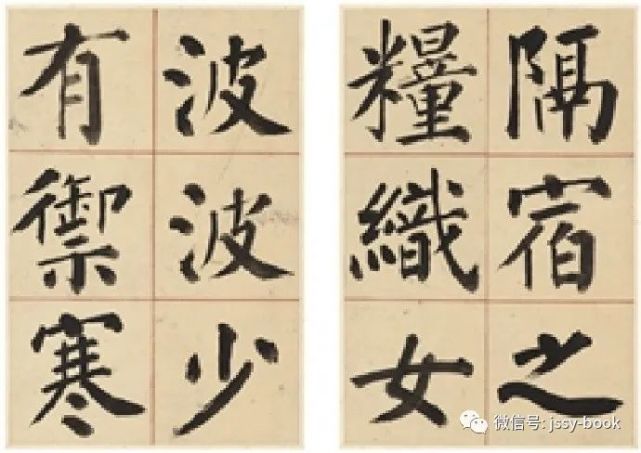 隔宿之
糧織女
波波少
有禦寒
微信号: jssy-book